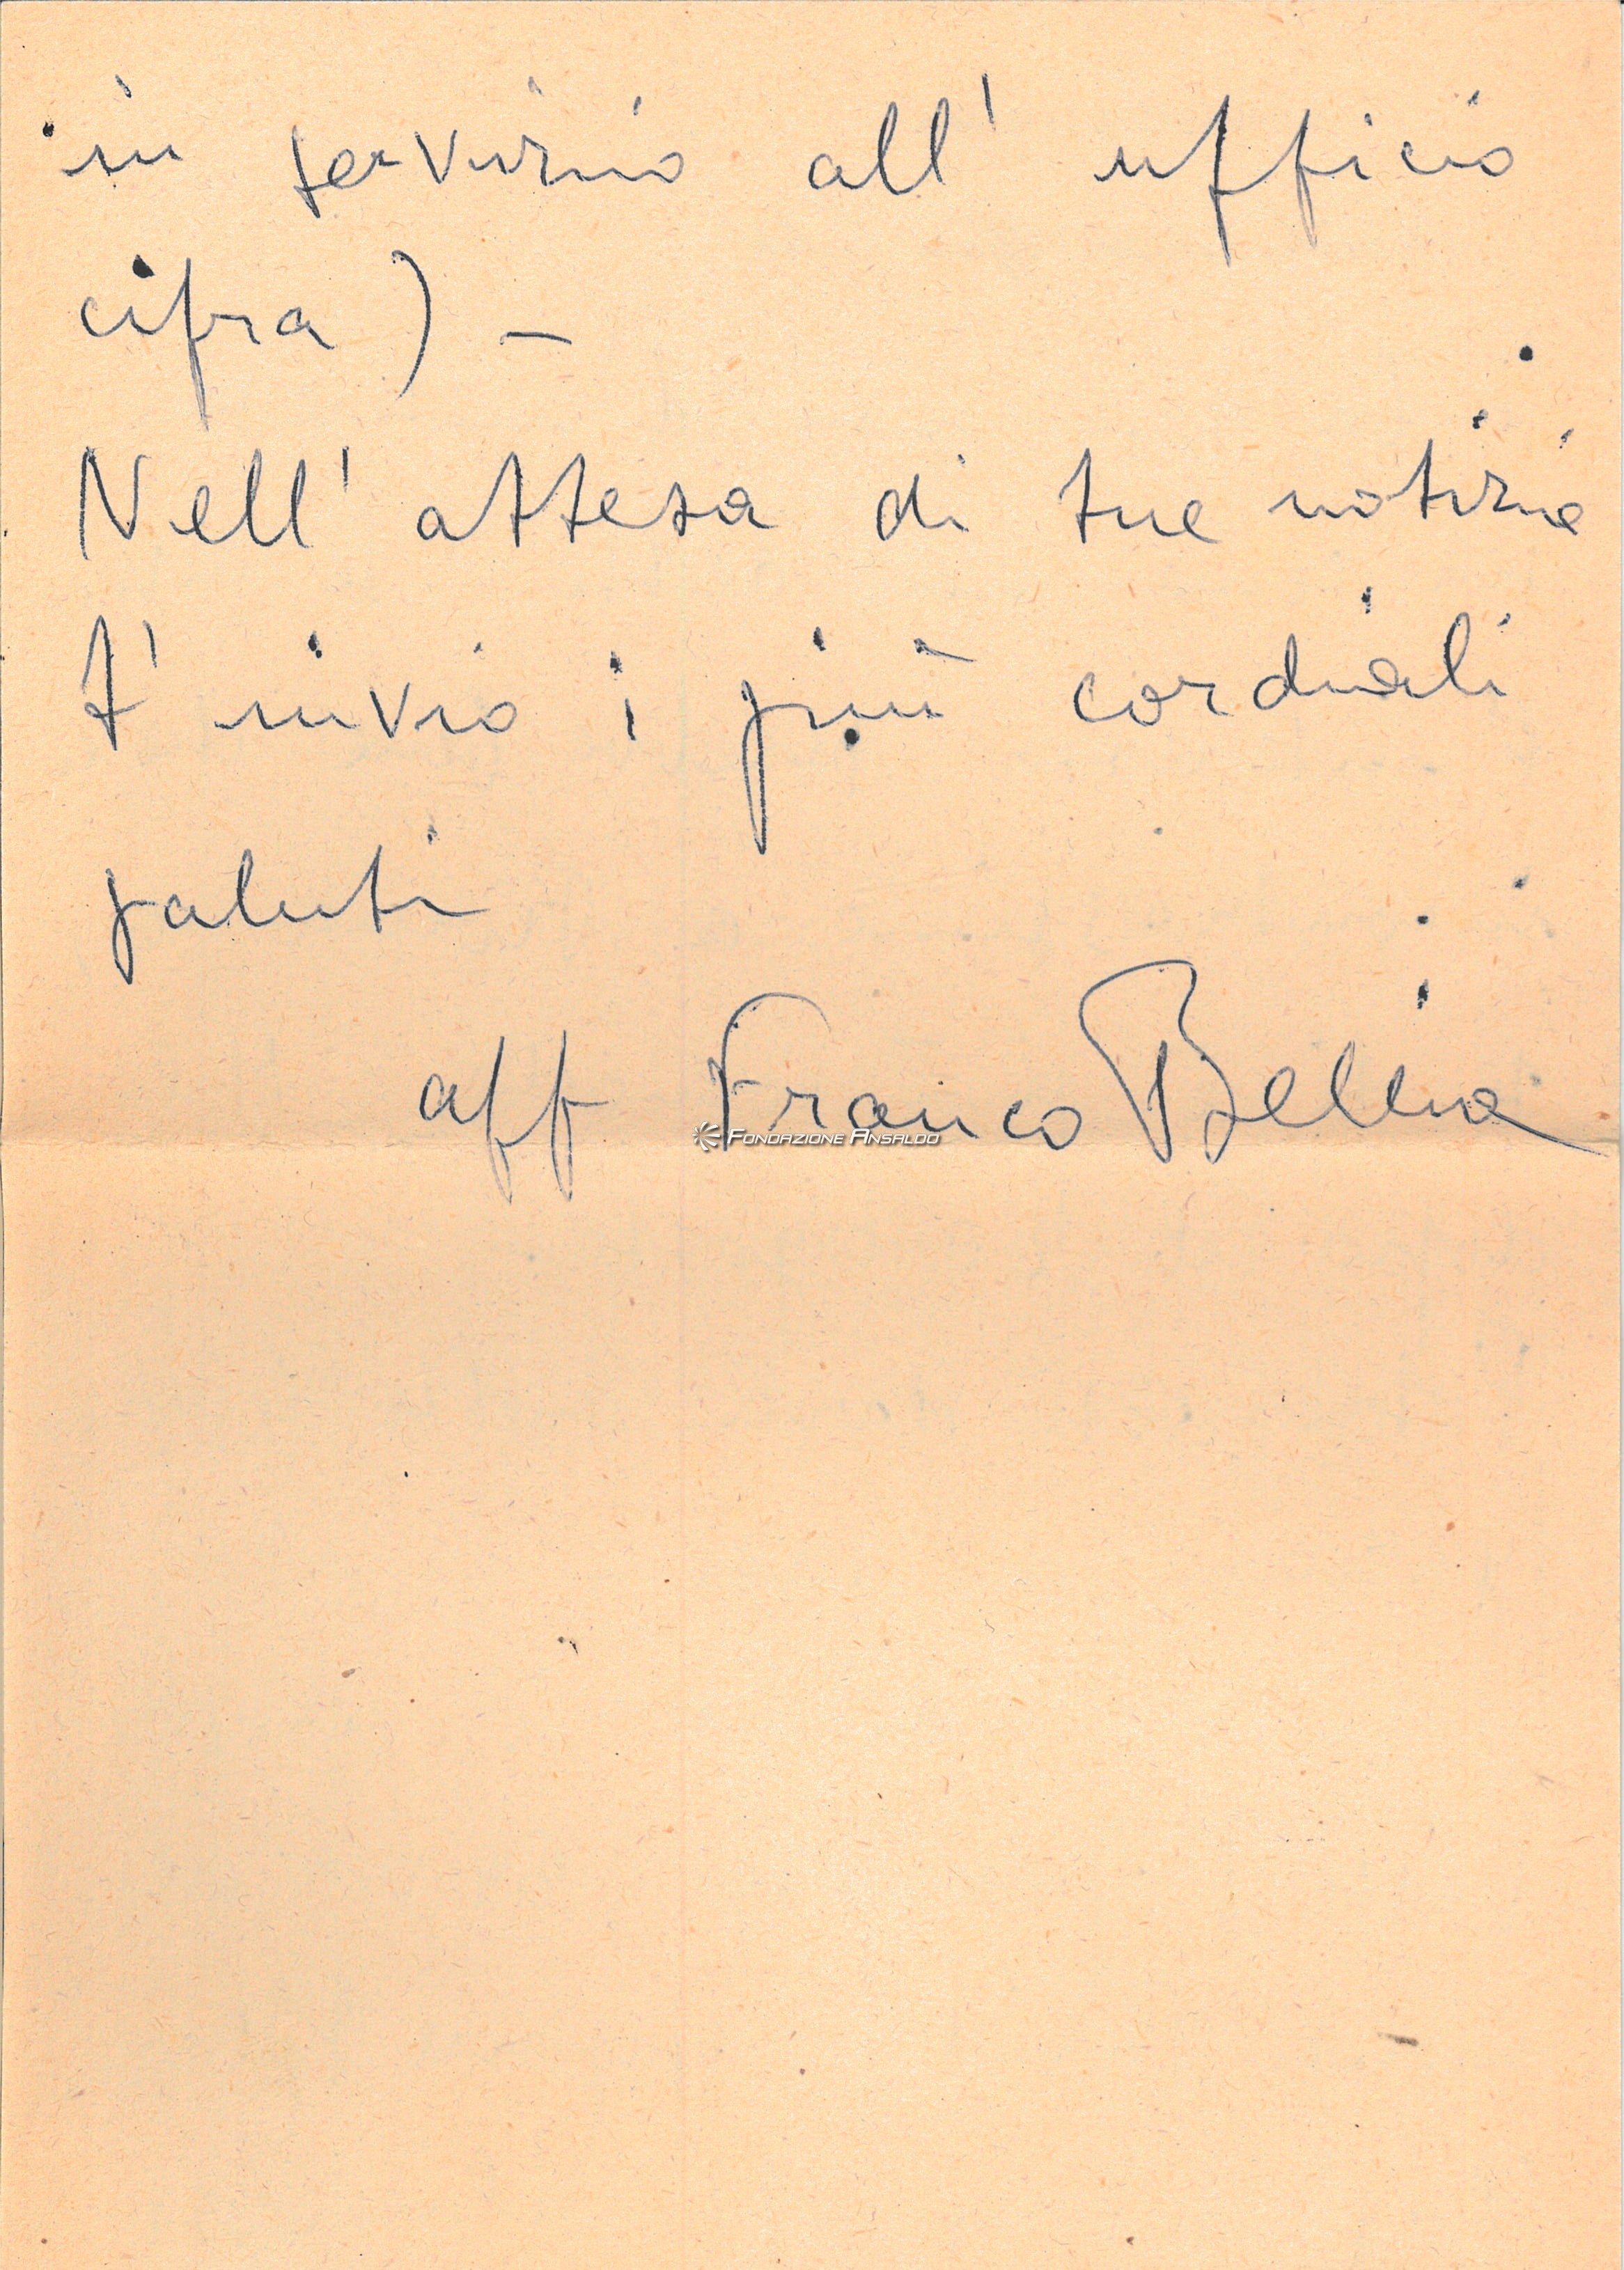 in servizio all' ufficio
cifra) –
Nell' attesa di tue notizie
t' invio i più cordiali
saluti
aff Franco Bellia
FONDAZIONE ANSALDO